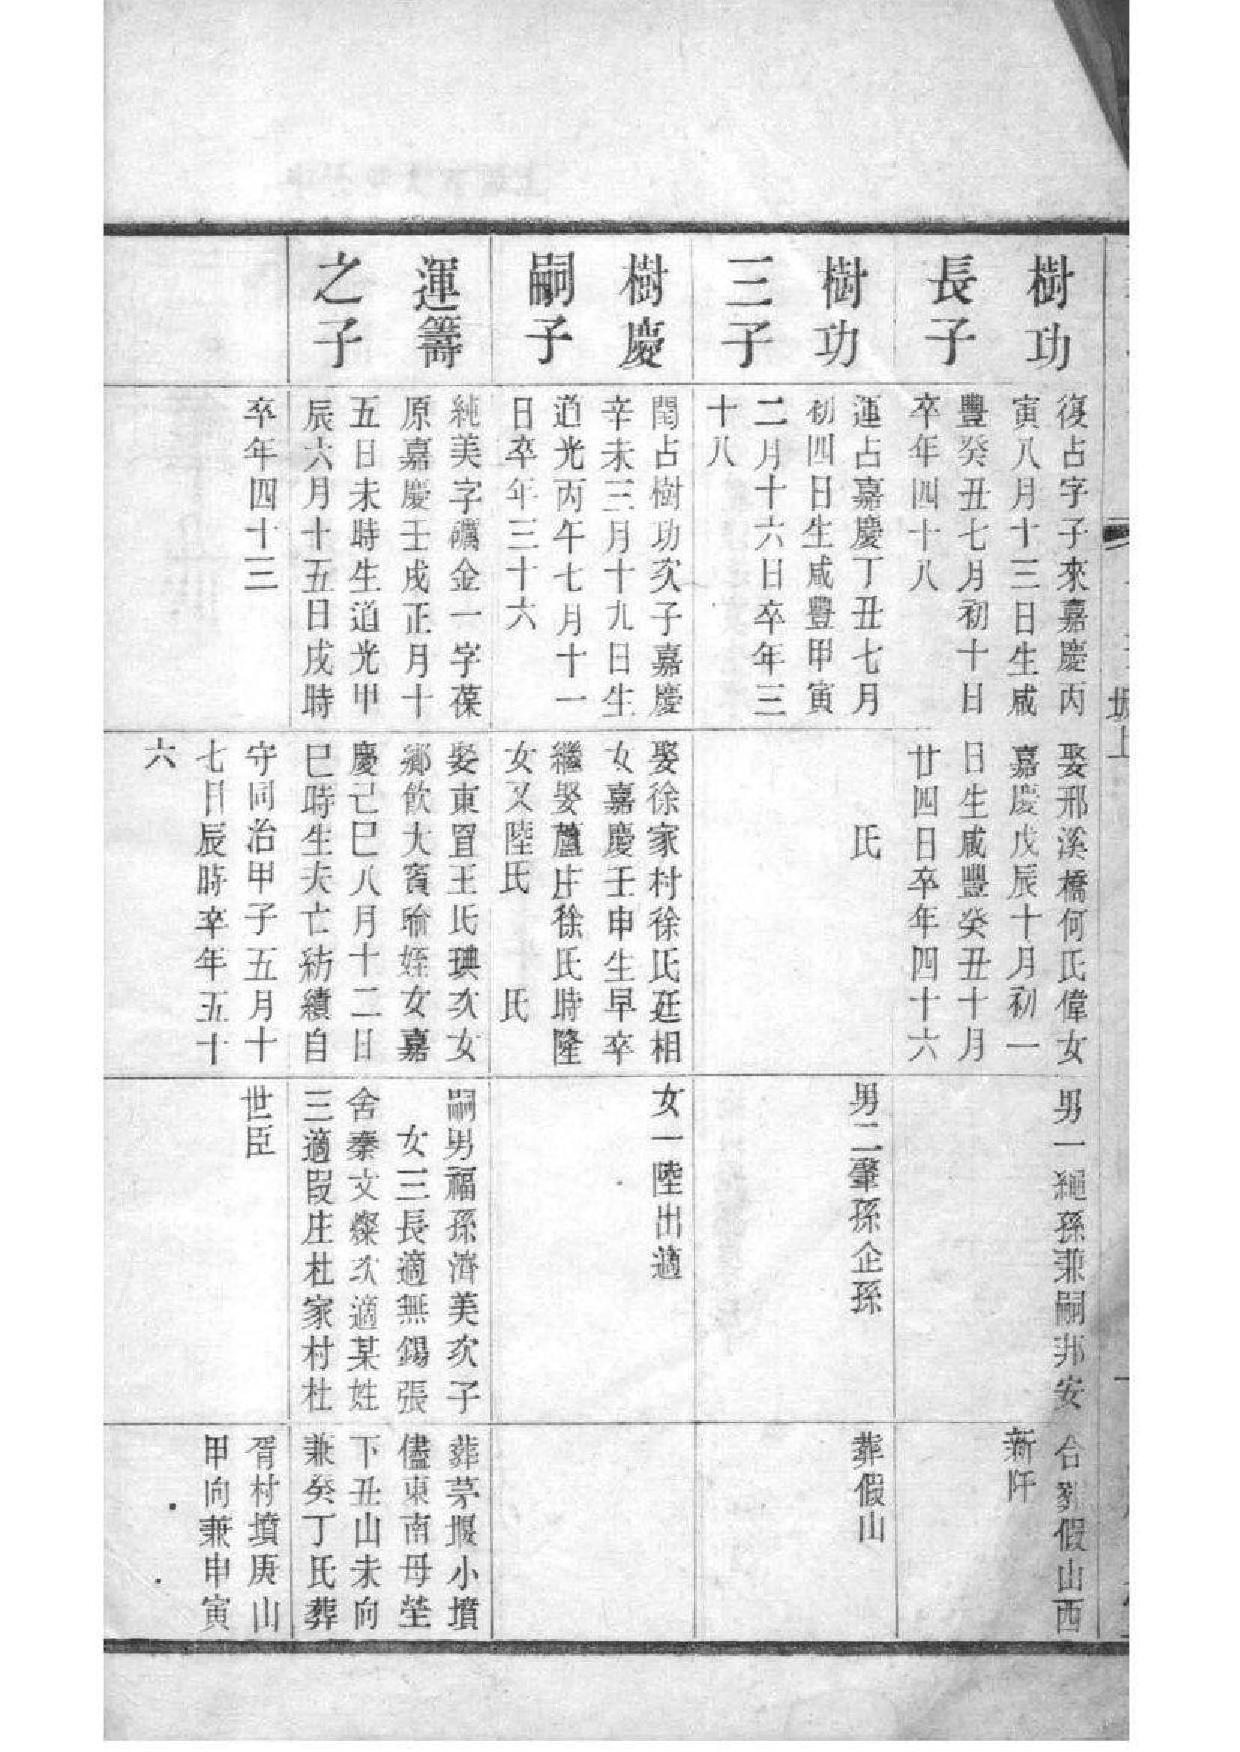 樹功
長子
復占字子來嘉慶丙
寅八月十三日生咸
豐癸丑七月初十日
卒年四十八
娶邢溪橋何氏偉女
嘉慶戊辰十月初一
日生咸豐癸丑十月
廿四日卒年四十六
男一繩孫兼嗣邦安
合葬假山西
新阡
樹功
三子
運占嘉慶丁丑七月
初四日生咸豐甲寅
二月十六日卒年三
十八
氏
男二肇孫企孫
葬假山
樹慶
嗣子
閏占樹功次子嘉慶
辛未三月十九日生
道光丙午七月十一
日卒年三十六
娶徐家村徐氏廷相
女嘉慶壬申生早卒
繼娶蘆庄徐氏時隆
女又陸氏 氏
女一陸出適
運籌
之子
純美字礪金一字葆
原嘉慶壬戌正月十
五日未時生道光甲
辰六月十五日戌時
卒年四十三
娶東罝王氏琠次女
鄉飲大賓喻姪女嘉
慶己巳八月十二日
巳時生夫亡紡績自
守同治甲子五月十
七日辰時卒年五十
六
嗣男福孫濟美次子
女三長適無錫張
舍秦文燦次適某姓
三適段庄杜家村杜
世臣
葬茅堰小墳
儘東南母塋
下丑山未向
兼癸丁氏葬
胥村墳庚山
甲向兼申寅